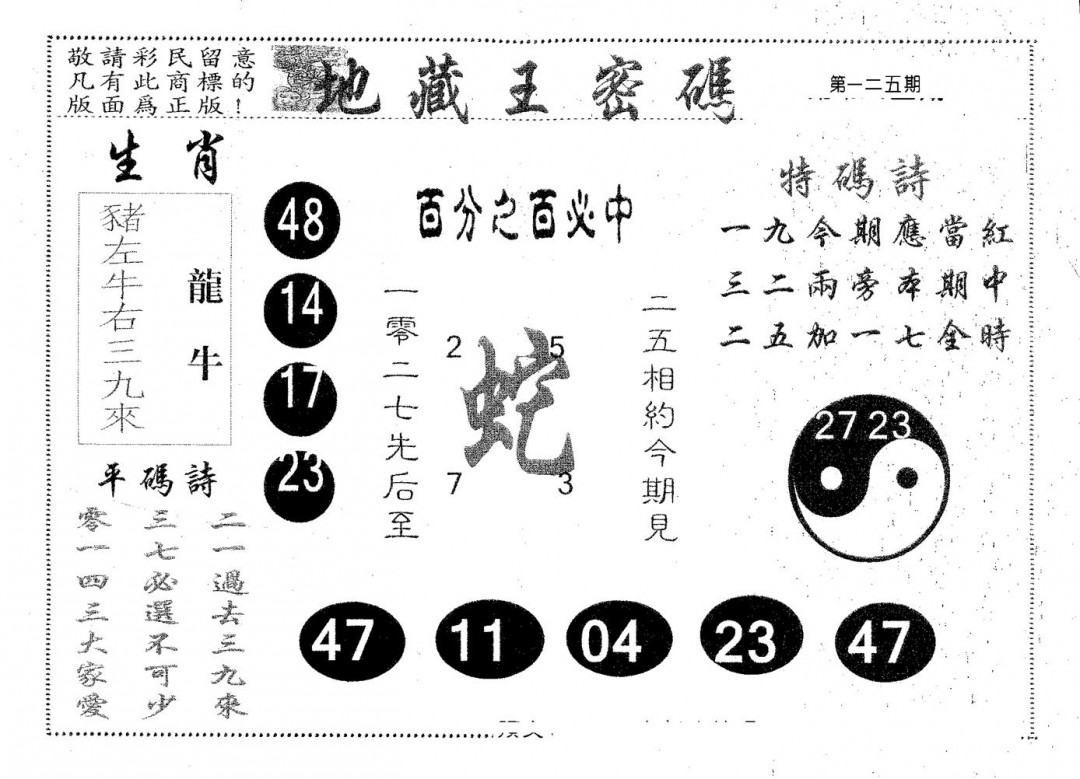 敬請彩民留意
凡有此商標的
版面爲正版！
地藏王密碼
第一二五期
生肖
豬左牛右三九來
龍牛
48
14
17
23
百分之百必中
一零二七先后至
2 5
蛇
7 3
二五相約今期見
特碼詩
一九今期應當紅
三二兩旁本期中
二五加一七全時
27 23
平碼詩
二一過去三九來
三七必選不可少
零一四三大家愛
47 11 04 23 47